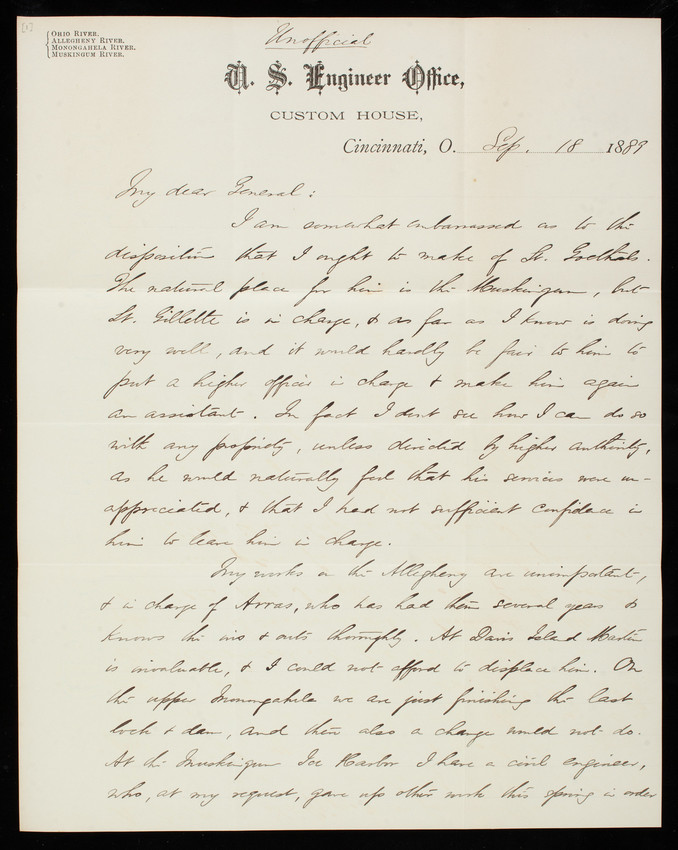 [1]
Ohio River,
Allegheny River,
Monongahela River,
Muskingum River.
Unofficial
U. S. Engineer Office,
CUSTOM HOUSE,
Cincinnati, O. Sep. 18 1889
My dear General:
I am somewhat embarrassed as to the
disposition that I ought to make of Lt. Goethals.
The natural place for him is the Muskingum, but
Lt. Gillette is in charge, & as far as I know is doing
very well, and it would hardly be fair to him to
put a higher officer in charge & make him again
an assistant. In fact I don't see how I can do so
with any propriety, unless directed by higher authority,
as he would naturally feel that his services were un-
appreciated, & that I had not sufficient confidence in
him to leave him in charge.
My works on the Allegheny are unimportant,
& in charge of Arras, who has had them several years &
knows the ins & outs thoroughly. At Davis Island Martin
is invaluable, & I could not afford to displace him. On
the upper Monongahela we are just finishing the last
lock & dam, and there also a change would not do.
At the Muskingum Ice Harbor I have a civil engineer,
who, at my request, gave up other work this spring in order